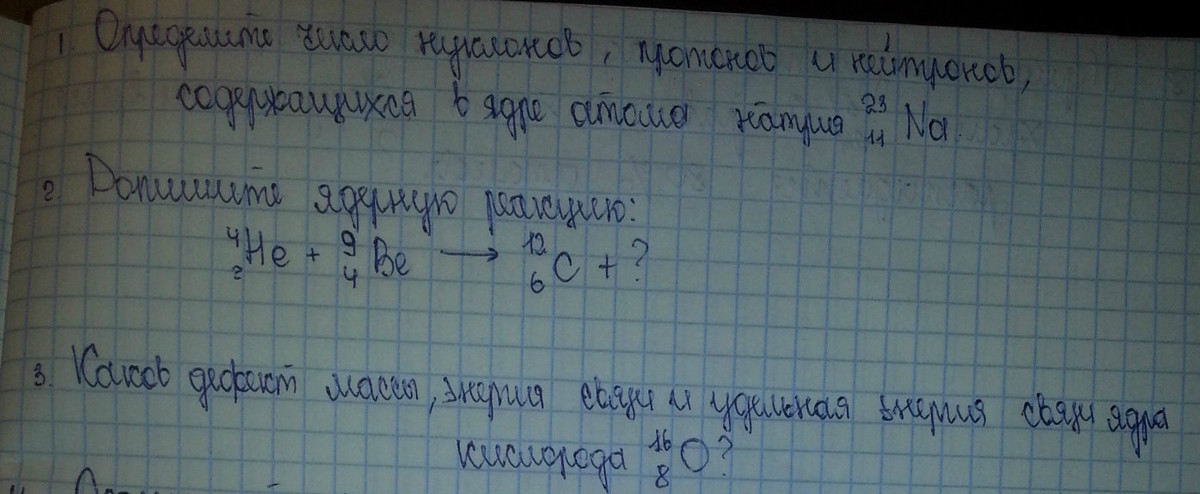 1. Определите число нуклонов, протонов и нейтронов,
содержащихся в ядре атома натрия ²³₁₁Na.
2. Допишите ядерную реакцию:
⁴₂He + ⁹₄Be → ¹²₆C + ?
3. Каков дефект массы, энергия связи и удельная энергия связи ядра
кислорода ¹⁶₈O?